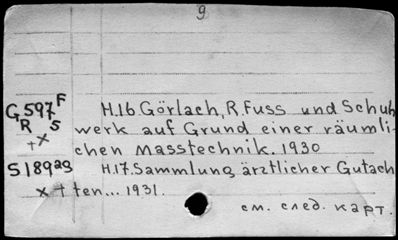 9
G 597 F H.16 Görlach, R. Fuss und Schuh
R 5 werk auf Grund einer räumli-
+x chen Masstechnik. 1930
S 189 ag H.17. Sammlung ärztlicher Gutach
x + ten... 1931.
см. след. карт.